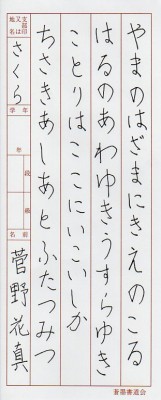 やまのはざまにきえのこる
はるのあわゆきうすらゆき
ことりはここにいこいしか
ちさきあしあとふたつみつ
支部印
又は
地名
さくら
学年
年
段級
名前
菅野花真
蒼墨書道会